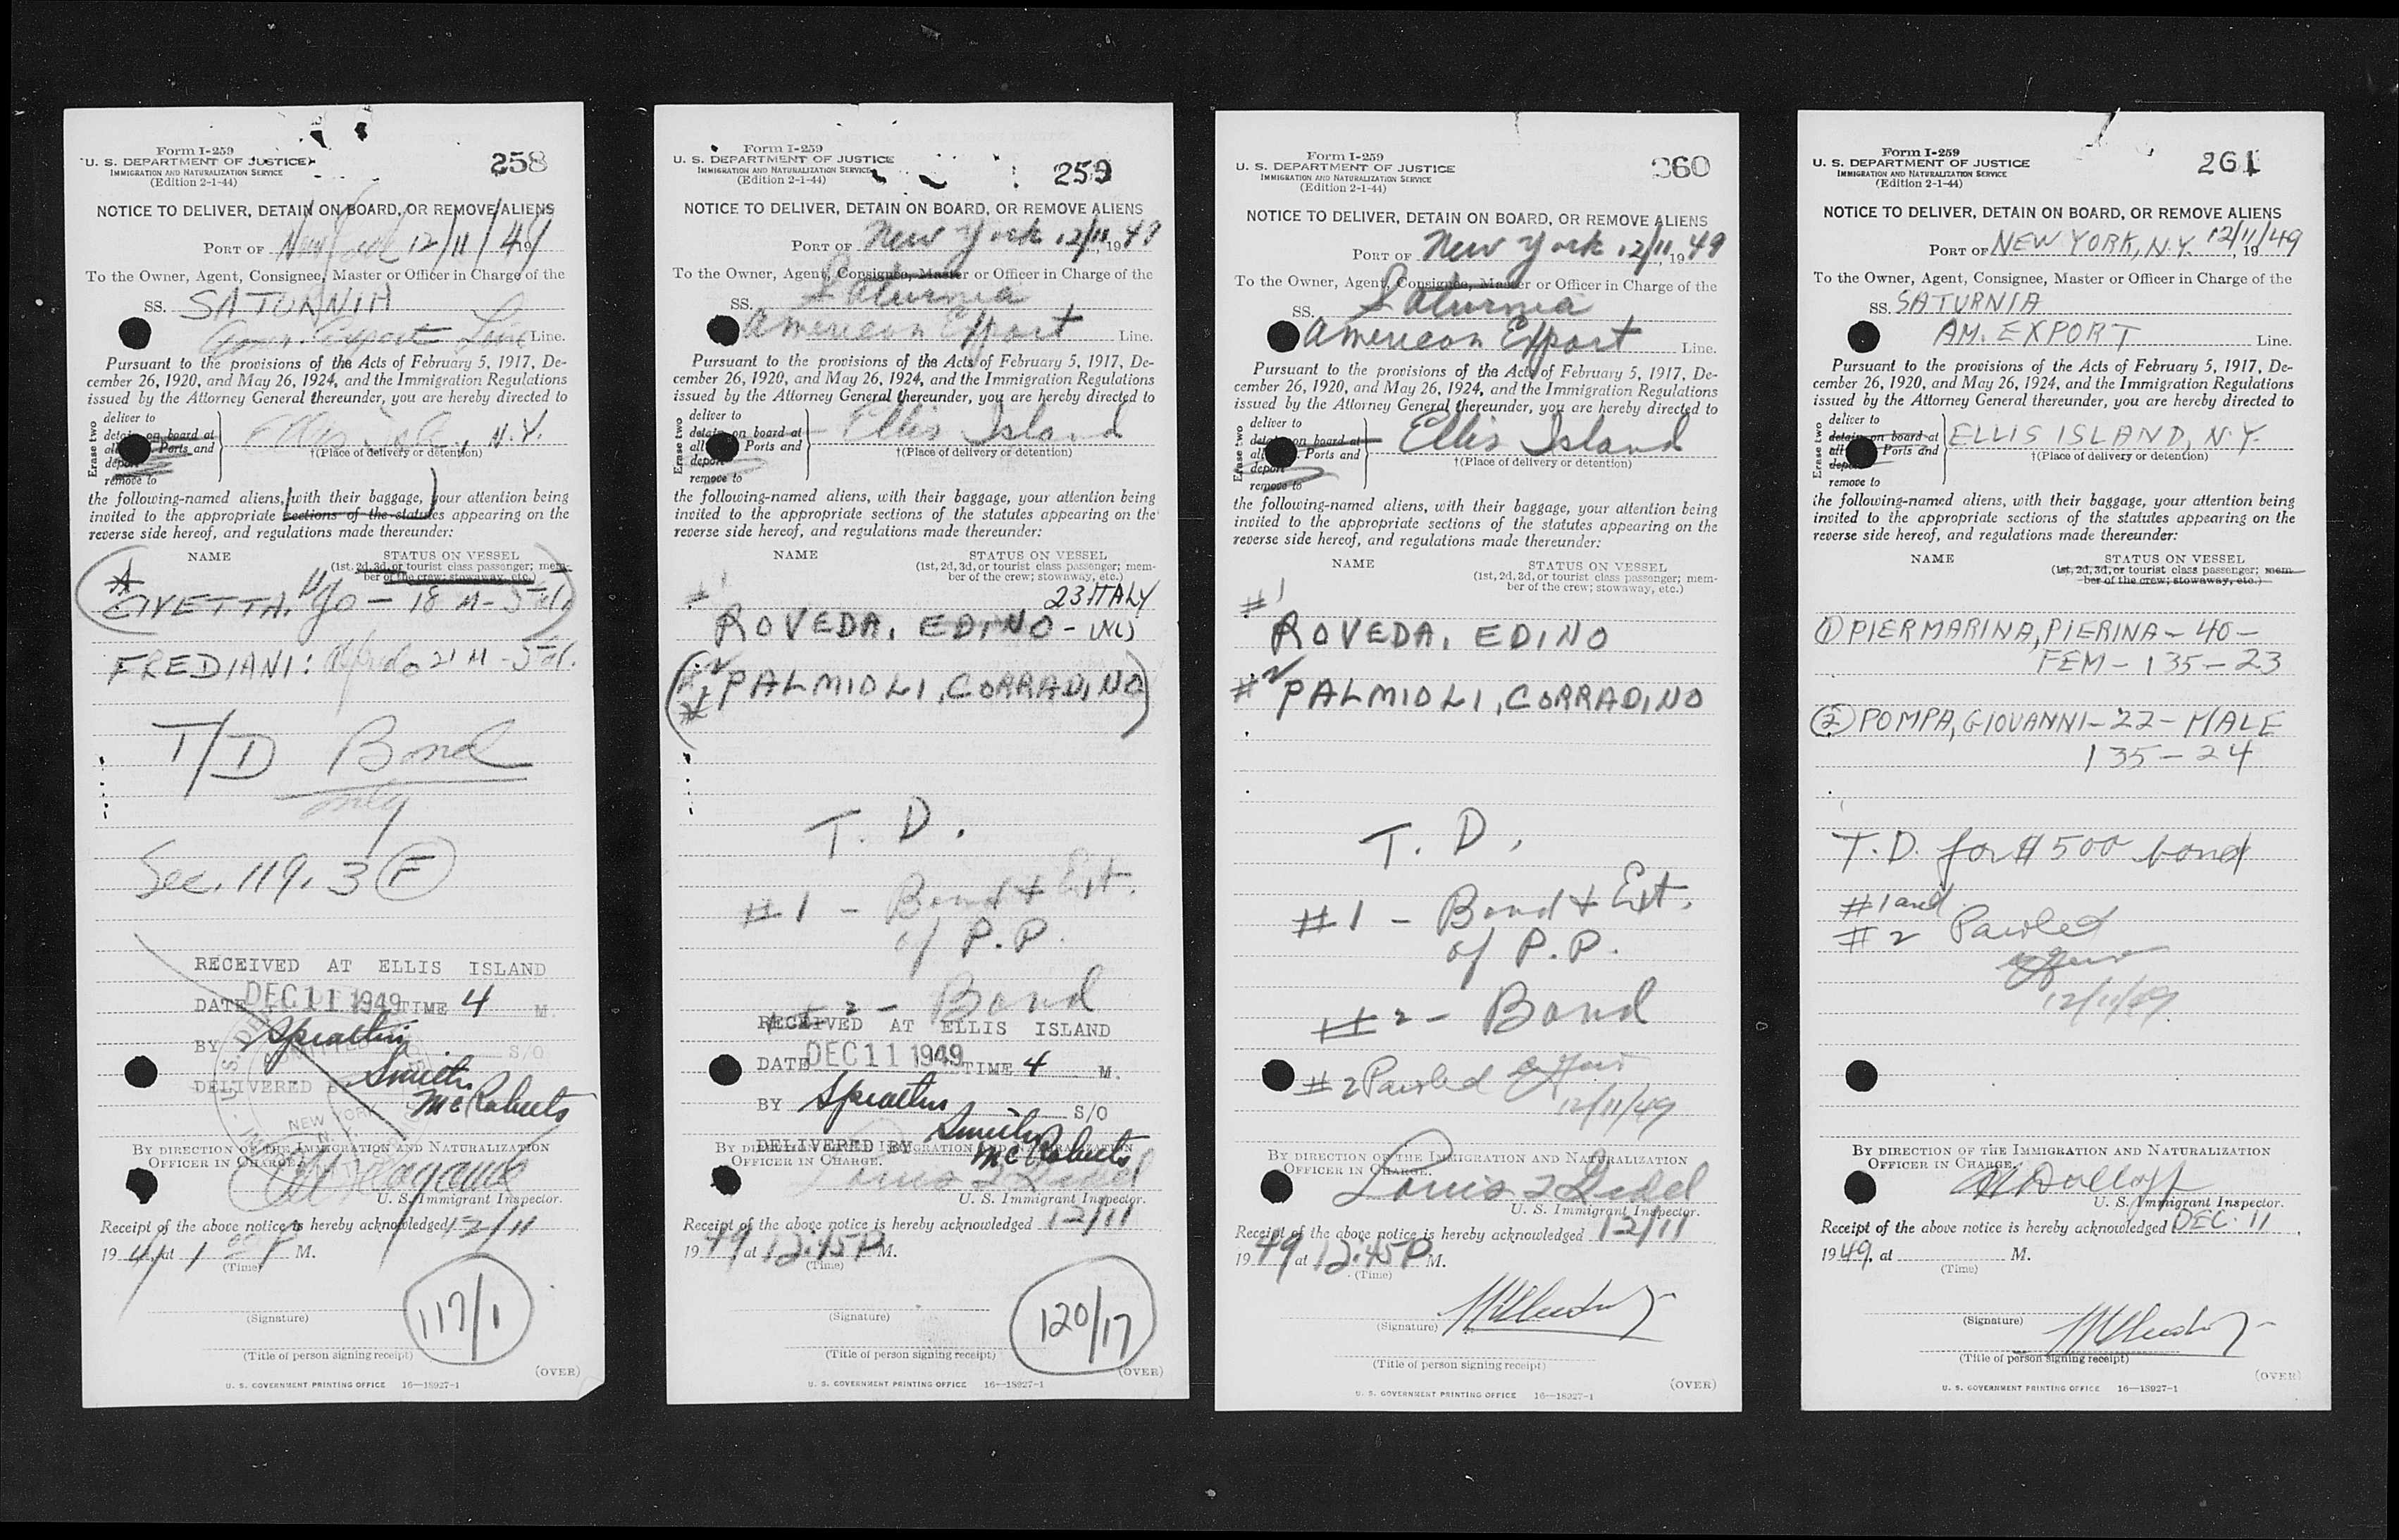 Form I-259
U. S. DEPARTMENT OF JUSTICE
IMMIGRATION AND NATURALIZATION SERVICE
(Edition 2-1-44)
258
NOTICE TO DELIVER, DETAIN ON BOARD, OR REMOVE ALIENS
PORT OF New 12/11/49
To the Owner, Agent, Consignee, Master or Officer in Charge of the
SS. SATURNIA
Amer. Export Line Line.
Pursuant to the provisions of the Acts of February 5, 1917, De-
cember 26, 1920, and May 26, 1924, and the Immigration Regulations
issued by the Attorney General thereunder, you are hereby directed to
Erase two
deliver to
detain on board at
all Ports and
deport
remove to
Ellis Isl., N.Y.
†(Place of delivery or detention)
the following-named aliens, with their baggage, your attention being
invited to the appropriate sections of the statutes appearing on the
reverse side hereof, and regulations made thereunder:
NAME
STATUS ON VESSEL
(1st, 2d, 3d, or tourist class passenger; mem-
ber of the crew; stowaway, etc.)
CIVETTA, Ugo - 18 M -
FREDIANI: Alfredo 21 M -
T/D Bond
only
Sec. 119. 3 (F)
RECEIVED AT ELLIS ISLAND
DATE DEC 11 1949 TIME 4 M.
BY S/O
DELIVERED BY Smith
McRoberts
NEW YORK
BY DIRECTION OF THE IMMIGRATION AND NATURALIZATION
OFFICER IN CHARGE.
U. S. Immigrant Inspector.
Receipt of the above notice is hereby acknowledged 12/11
1949 at 1 00 P M.
(Time)
(Signature)
117/1
(Title of person signing receipt)
(OVER)
U. S. GOVERNMENT PRINTING OFFICE 16—18927-1
Form I-259
U. S. DEPARTMENT OF JUSTICE
IMMIGRATION AND NATURALIZATION SERVICE
(Edition 2-1-44)
259
NOTICE TO DELIVER, DETAIN ON BOARD, OR REMOVE ALIENS
PORT OF New York 12/11, 1949
To the Owner, Agent, Consignee, Master or Officer in Charge of the
SS. Saturnia
American Export Line.
Pursuant to the provisions of the Acts of February 5, 1917, De-
cember 26, 1920, and May 26, 1924, and the Immigration Regulations
issued by the Attorney General thereunder, you are hereby directed to
Erase two
deliver to
detain on board at
all Ports and
deport
remove to
Ellis Island
†(Place of delivery or detention)
the following-named aliens, with their baggage, your attention being
invited to the appropriate sections of the statutes appearing on the
reverse side hereof, and regulations made thereunder:
NAME
STATUS ON VESSEL
(1st, 2d, 3d, or tourist class passenger; mem-
ber of the crew; stowaway, etc.)
23 ITALY
#1
ROVEDA, EDINO -
#2 PALMIOLI, CORRADINO
T. D.
#1 - Bond + Ext.
of P.P.
#2 - Bond
RECEIVED AT ELLIS ISLAND
DATE DEC 11 1949 TIME 4 M.
BY S/O
DELIVERED BY Smith
McRoberts
BY DIRECTION OF THE IMMIGRATION AND NATURALIZATION
OFFICER IN CHARGE.
Louis
U. S. Immigrant Inspector.
Receipt of the above notice is hereby acknowledged 12/11
1949 at 12:45 P M.
(Time)
(Signature)
120/17
(Title of person signing receipt)
(OVER)
U. S. GOVERNMENT PRINTING OFFICE 16—18927-1
Form I-259
U. S. DEPARTMENT OF JUSTICE
IMMIGRATION AND NATURALIZATION SERVICE
(Edition 2-1-44)
260
NOTICE TO DELIVER, DETAIN ON BOARD, OR REMOVE ALIENS
PORT OF New York 12/11, 1949
To the Owner, Agent, Consignee, Master or Officer in Charge of the
SS. Saturnia
American Export Line.
Pursuant to the provisions of the Acts of February 5, 1917, De-
cember 26, 1920, and May 26, 1924, and the Immigration Regulations
issued by the Attorney General thereunder, you are hereby directed to
Erase two
deliver to
detain on board at
all Ports and
deport
remove to
Ellis Island
†(Place of delivery or detention)
the following-named aliens, with their baggage, your attention being
invited to the appropriate sections of the statutes appearing on the
reverse side hereof, and regulations made thereunder:
NAME
STATUS ON VESSEL
(1st, 2d, 3d, or tourist class passenger; mem-
ber of the crew; stowaway, etc.)
#1
ROVEDA, EDINO
#2 PALMIOLI, CORRADINO
T. D.
#1 - Bond + Ext.
of P.P.
#2 - Bond
#2 Paroled
12/11/49
BY DIRECTION OF THE IMMIGRATION AND NATURALIZATION
OFFICER IN CHARGE.
Louis
U. S. Immigrant Inspector.
Receipt of the above notice is hereby acknowledged 12/11
1949 at 12:45 P M.
(Time)
(Signature)
(Title of person signing receipt)
(OVER)
U. S. GOVERNMENT PRINTING OFFICE 16—18927-1
Form I-259
U. S. DEPARTMENT OF JUSTICE
IMMIGRATION AND NATURALIZATION SERVICE
(Edition 2-1-44)
261
NOTICE TO DELIVER, DETAIN ON BOARD, OR REMOVE ALIENS
PORT OF NEW YORK, N.Y. 12/11/49, 19
To the Owner, Agent, Consignee, Master or Officer in Charge of the
SS. SATURNIA
AM. EXPORT Line.
Pursuant to the provisions of the Acts of February 5, 1917, De-
cember 26, 1920, and May 26, 1924, and the Immigration Regulations
issued by the Attorney General thereunder, you are hereby directed to
Erase two
deliver to
detain on board at
all Ports and
deport
remove to
ELLIS ISLAND, N.Y.
†(Place of delivery or detention)
the following-named aliens, with their baggage, your attention being
invited to the appropriate sections of the statutes appearing on the
reverse side hereof, and regulations made thereunder:
NAME
STATUS ON VESSEL
(1st, 2d, 3d, or tourist class passenger; mem-
ber of the crew; stowaway, etc.)
① PIERMARINA, PIERINA - 40 -
FEM - 135 - 23
② POMPA, GIOVANNI - 22 - MALE
135 - 24
T.D. for $500 bond
#1 and
#2 Paroled
12/11/49
BY DIRECTION OF THE IMMIGRATION AND NATURALIZATION
OFFICER IN CHARGE.
U. S. Immigrant Inspector.
Receipt of the above notice is hereby acknowledged DEC. 11,
1949, at M.
(Time)
(Signature)
(Title of person signing receipt)
(OVER)
U. S. GOVERNMENT PRINTING OFFICE 16—18927-1